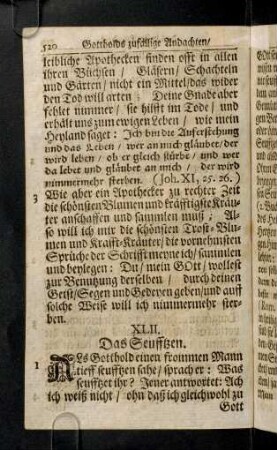 520 Gottholds zufällige Andachten/
leibliche Apothecken finden offt in allen
ihren Büchsen / Gläsern/ Schachteln
und Gärten/ nicht ein Mittel/das wider
den Tod will arten: Deine Gnade aber
fehlet nimmer/ sie hilfft im Tode/ und
erhält uns zum ewigen Leben / wie mein
Heyland saget: Ich bin die Auferstehung
und das Leben/ wer an mich gläubet/der
wird leben / ob er gleich stürbe/ und wer
da lebet und gläubet an mich / der wird
nimmermehr sterben. (Joh. XI, 25. 26.)
3 Wie aber ein Apothecker zu rechter Zeit
die schönsten Blumen und kräfftigste Kräu-
ter anschaffen und sammlen muß; Al-
so will ich mir die schönsten Trost-Blu-
men und Krafft-Kräuter/ die vornehmsten
Sprüche der Schrifft meyne ich/ sammlen
und beylegen: Du/ mein GOtt/ wollest
zur Benutzung derselben / durch deinen
Geist/ Segen und Gedeyen geben/und auff
solche Weise will ich nimmermehr ster-
ben.
XLII.
Das Seufftzen.
1 ALs Gotthold einen frommen Mann
tieff seufftzen sahe/ sprach er: Was
seufftzet ihr? Jener antwortet: Ach
ich weiß nicht / ohn daß ich gleichwohl zu
Gott